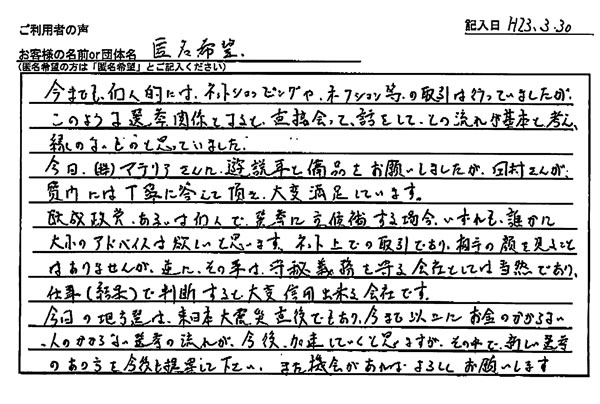 ご利用者の声
記入日 H23.3.30
お客様の名前or団体名 匿名希望.
(匿名希望の方は「匿名希望」とご記入ください)
今までも、個人的には、ネットショッピングや、オークション等の取引は行っていましたが、
このような選挙関係とすると、直接会って、話をして、との流れが基本と考え、
縁のないものと思っていました。
今回、(株)マテリアさんに、遊説車と備品をお願いしましたが、田村さんが、
質問には丁寧に答えて頂き、大変満足しています。
既成政党、あるいは個人で、選挙に立候補する場合、いずれも、誰かに
大小のアドバイスは欲しいと思います。ネット上での取引であり、相手の顔を見ること
はありませんが、逆に、その事は、守秘義務を守る会社としては当然であり、
仕事(結果)で判断すると大変信用出来る会社です。
今回の地方選は、東日本大震災直後でもあり、今まで以上に お金のかからない
、人のかからない選挙の流れが、今後、加速していくと思いますが、その中で、新しい選挙
のあり方を今後も提案して下さい。また機会があればよろしくお願いします